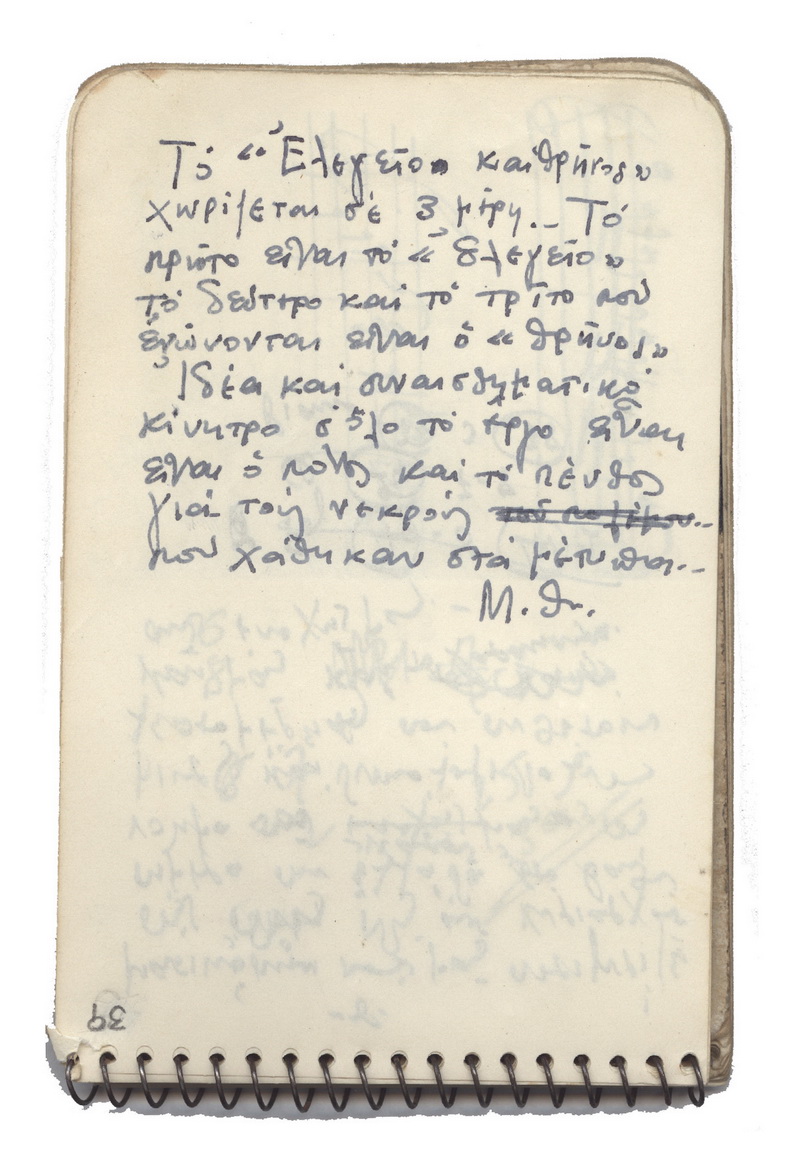 Τό «Ἐλεγεῖο» καί θρῆνος»
χωρίζεται σέ 3 μέρη.. Τό
πρῶτο εἶναι τό «Ἐλεγεῖο»
τό δεύτερο καί τό τρίτο πού
ἑνώνονται εἶναι ὁ «θρῆνος»
Ἰδέα καί συναισθηματικό
κίνητρο σ' ὅλο τό ἔργο εἶναι
εἶναι ὁ πόνος καί τό πένθος
γιά τούς νεκρούς
πού χάθηκαν στά μέτωπα..
Μ. Θ.
39